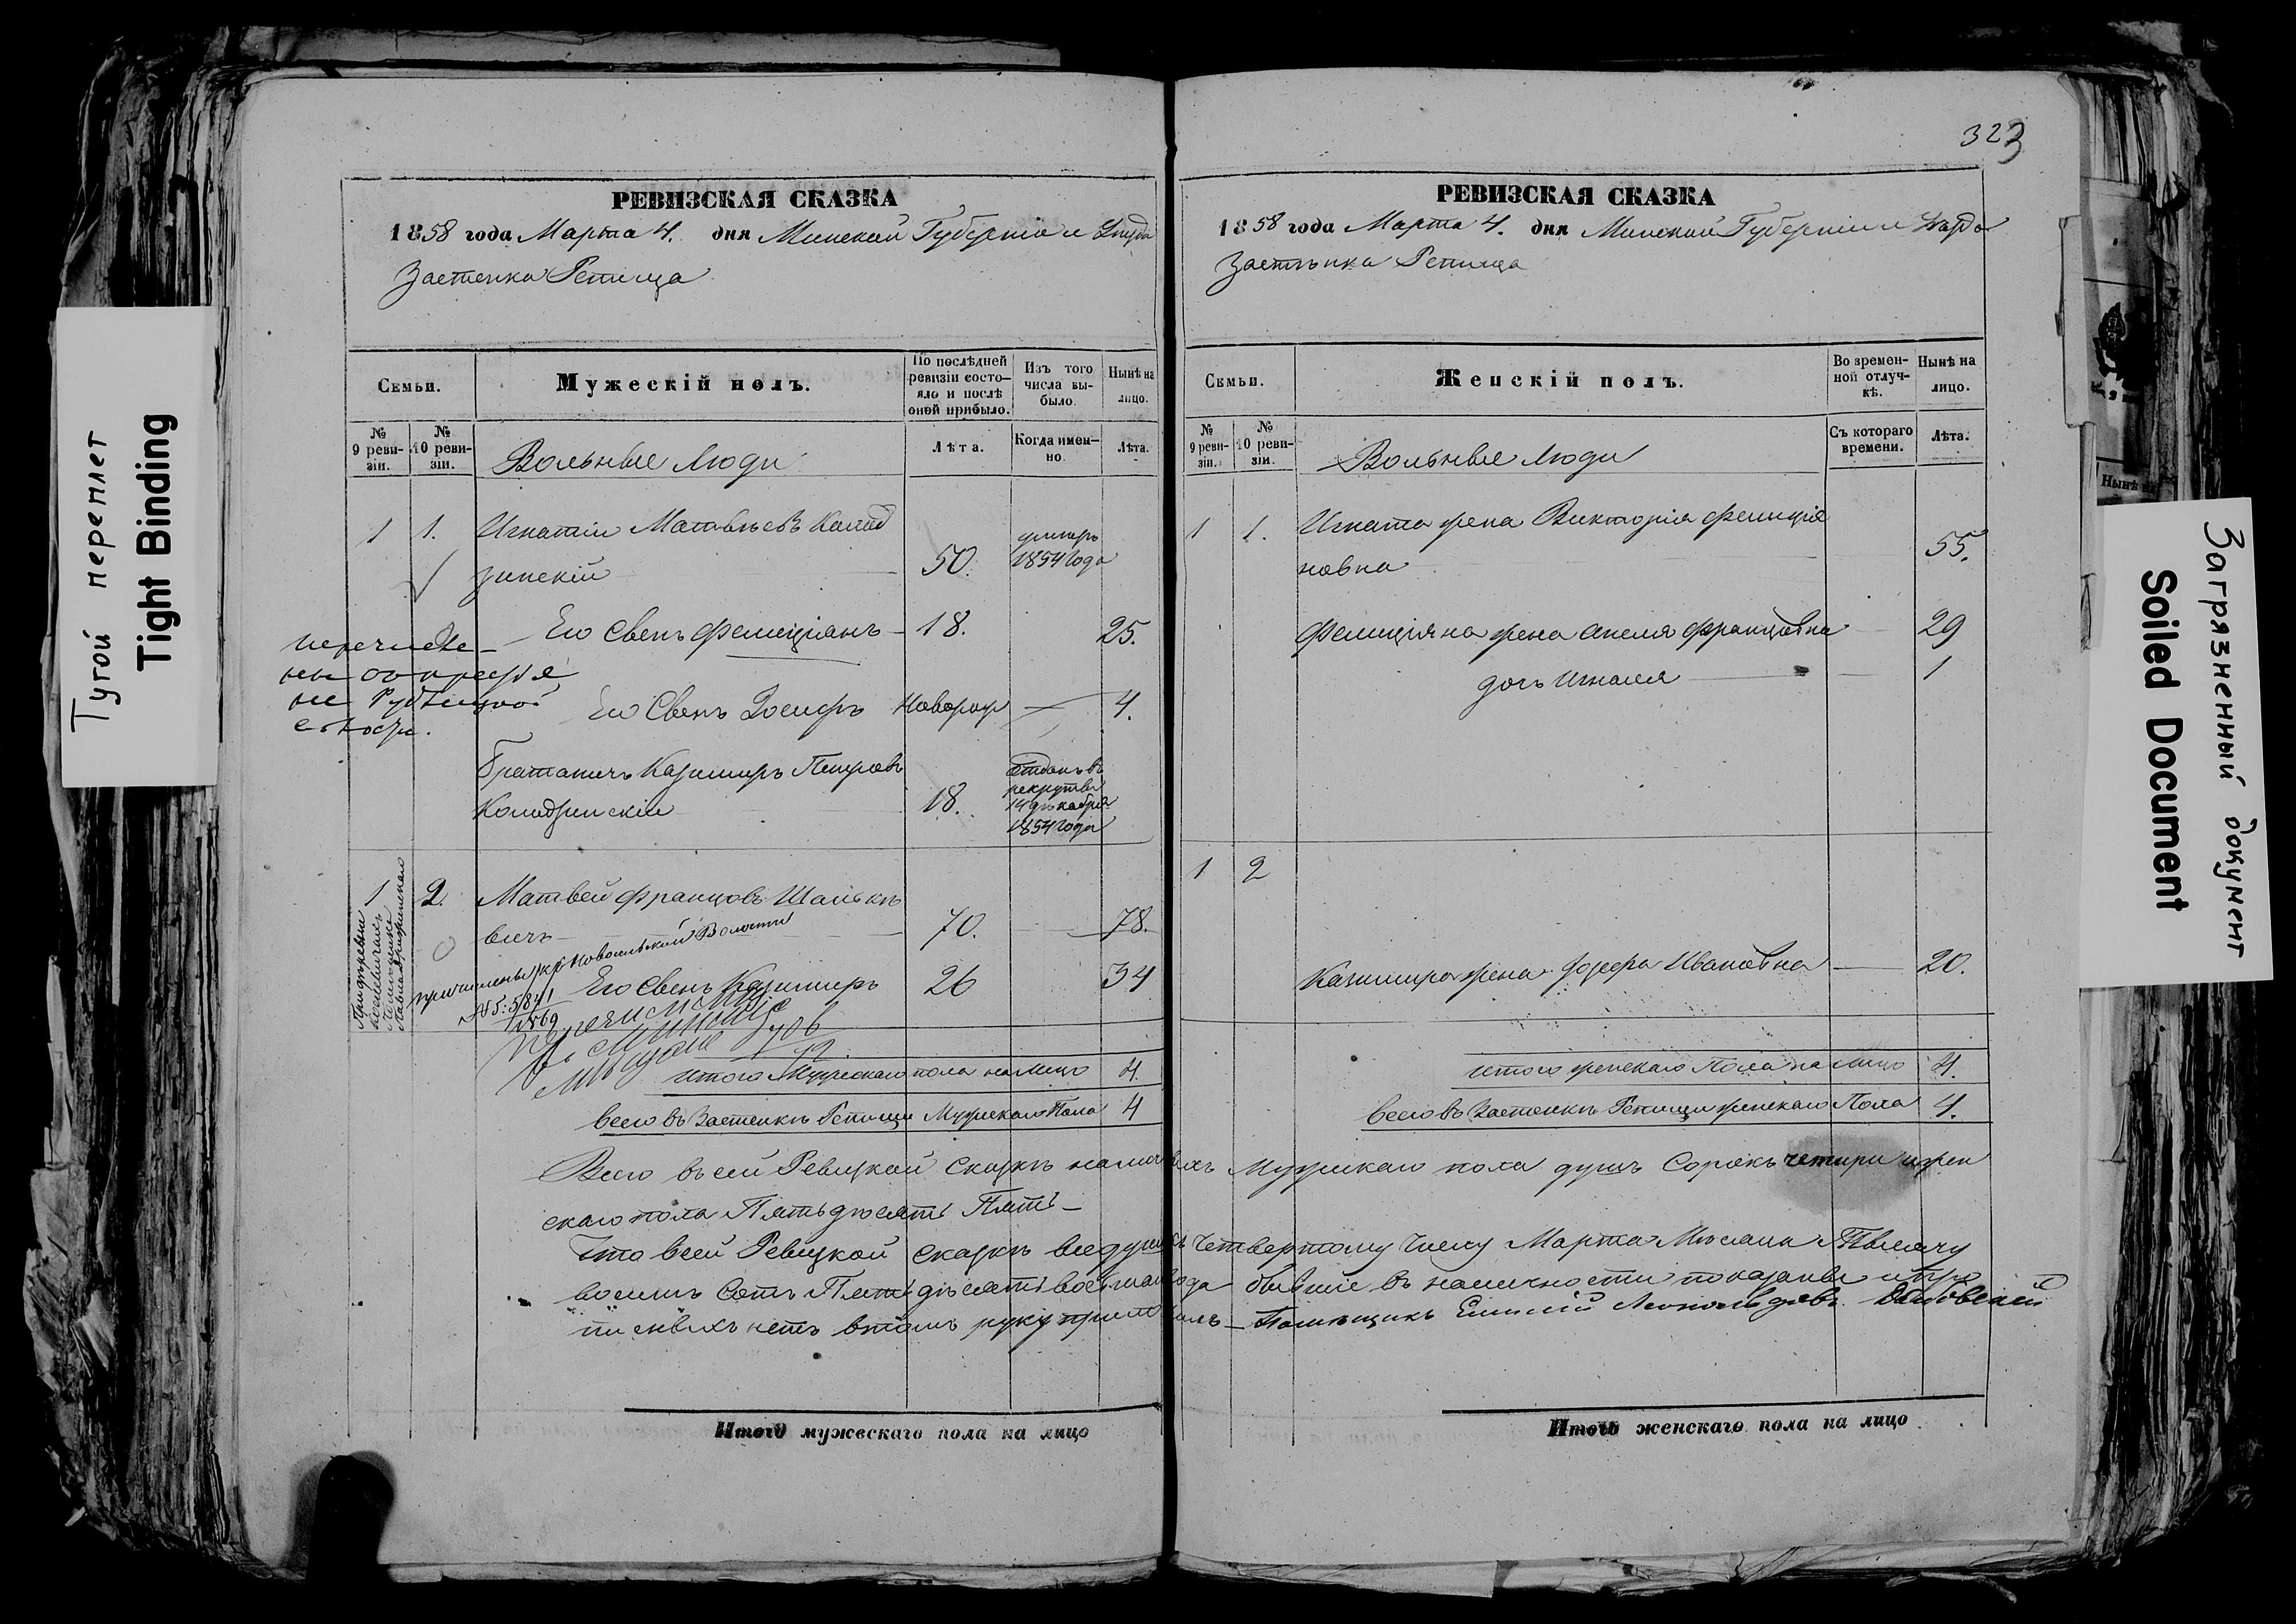 Тугой переплет
Tight Binding
РЕВИЗСКАЯ СКАЗКА
1858 года Марта 4. дня Минской Губерніи и Уезда
Застенка Репища
Семьи.
Мужескій полъ.
По послѣдней ревизіи состояло и послѣ оной прибыло.
Изъ того числа выбыло.
Нынѣ на лицо.
№ 9 ревизіи.
№ 10 ревизіи.
Вольные Люди
Лѣта.
Когда именно.
Лѣта.
1 1. Игнатій Матвѣевъ
зинскій 50. умеръ 1854 года
Его Сынъ Фелиціянъ 18. 25.
Его Сынъ Іосифъ Новорож 4.
Братаничъ Казимиръ Петровъ
18. отданъ въ рекруты 14 декабря 1854 года
1 2. Матвей Францовъ
вичъ 70. 78.
причислены къ Волости
№ 5841
1869
Его Сынъ Казимиръ 26 34
итого Мужескаго пола на лицо 4.
всего въ Застенкѣ Репищи Мужескаго Пола 4
323
РЕВИЗСКАЯ СКАЗКА
1858 года Марта 4. дня Минской Губерніи и Уезда
Застѣнка Репища
Семьи.
Женскій полъ.
Во временной отлучкѣ.
Нынѣ на лицо.
№ 9 ревизіи.
№ 10 ревизіи.
Вольные Люди
Съ котораго времени.
Лѣта.
1 1. Игната жена Викторія Фелиція
новна 55.
Фелиціяна жена Анеля Францовна 29
дочь 1
1 2
Казимира жена Іозефа Ивановна 20.
итого женскаго Пола на лицо 4.
всего въ Застенкѣ Репищи женскаго Пола 4.
Всего въ сей Ревизкой Сказкѣ наличныхъ Мужескаго пола душъ Сорокъ четыри и жен
скаго пола Пятьдесятъ Пять
Что в сей Ревизкой сказкѣ все души къ Четвертому Числу Марта Мѣсяца Тысячу
восемь Сотъ Пятьдѣсятъ восьмаго года бывшіе въ наличности показаны и про
писныхъ нетъ в томъ руку приложилъ Помѣщикъ Леопольдовъ
Итого мужескаго пола на лицо
Итого женскаго пола на лицо
Нынѣ на
Загрязненный документ
Soiled Document